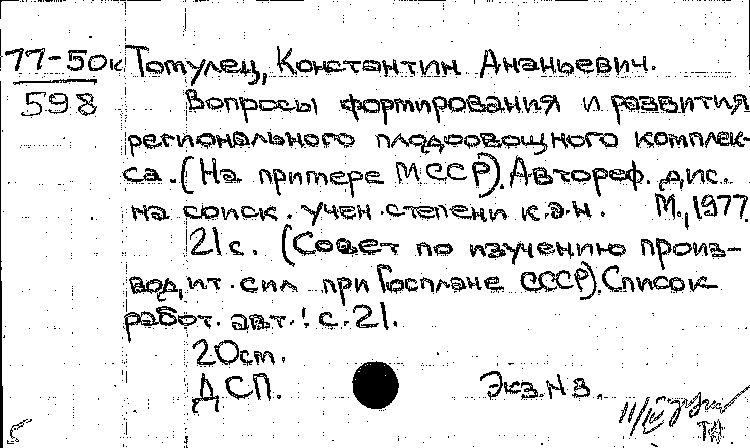 77-50к Тотулец, Константин Ананьевич.
598
Вопросы формирования и развития
регионального плодоовощного комплек-
са. (На примере МССР). Автореф. дис.
на соиск. учен. степени к.э.н. М., 1977.
21 с. (Совет по изучению произ-
водит. сил при Госплане СССР). Список
работ. авт.: с. 21.
20 см.
ДСП. Экз. № 3.